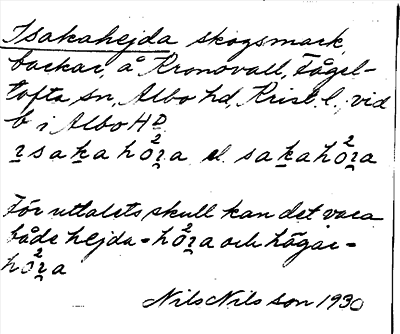 Isakahejda skogsmark,
backar, å Kronovall, Fågel-
tofta sn, Albo hd, Krist. l., vid
b i Albo HD
ɪsakahö²ʒa el. sakahö²ʒa
För uttalets skull kan det vara
både hejda - hö²ʒa och högar -
hö²ʒa
Nils Nilsson 1930